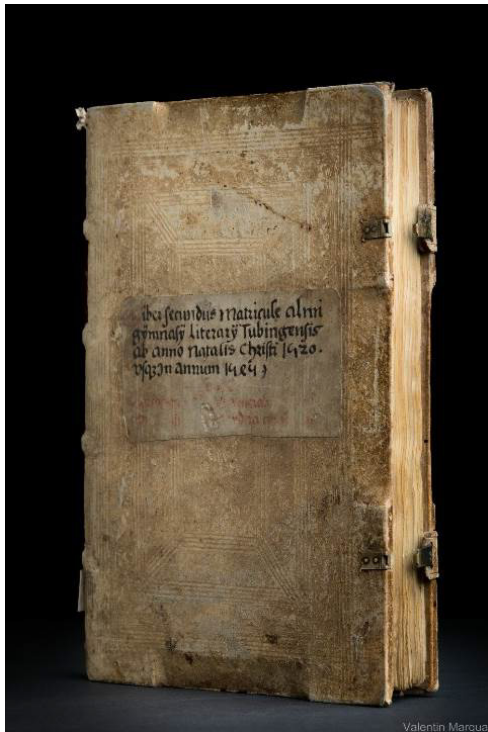 liber secundus Matricule Almi
gymnasÿ literarÿ Tubingensis
ab Anno Natalis Christi 1520.
Vsq3 In Annum
Valentin Marqua